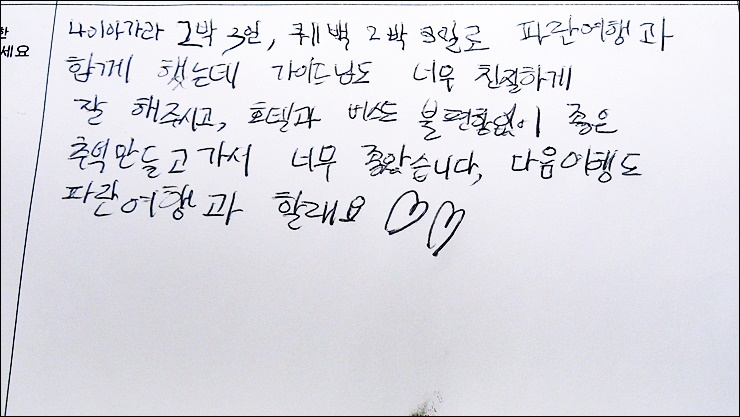 한
세요
나이아가라 2박 3일, 퀘벡 2박 3일로 파란여행과
함께 했는데 가이드님도 너무 친절하게
잘 해주시고, 호텔과 버스도 불편함없이 좋은
추억만들고가서 너무 좋았습니다, 다음여행도
파란여행과 할래요 ♡♡